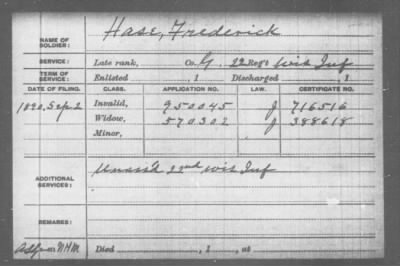 NAME OF SOLDIER: Hase, Frederick
SERVICE: Late rank, Co. G, 22 Reg't Wis Inf
TERM OF SERVICE: Enlisted , 1 Discharged , 1
DATE OF FILING. CLASS. APPLICATION NO. LAW. CERTIFICATE NO.
1890, Sep. 2 Invalid, 950045 J 716516
Widow, 570302 J 388618
Minor,
ADDITIONAL SERVICES: Unass'd 22nd Wis Inf
REMARKS:
Died , 1 , at